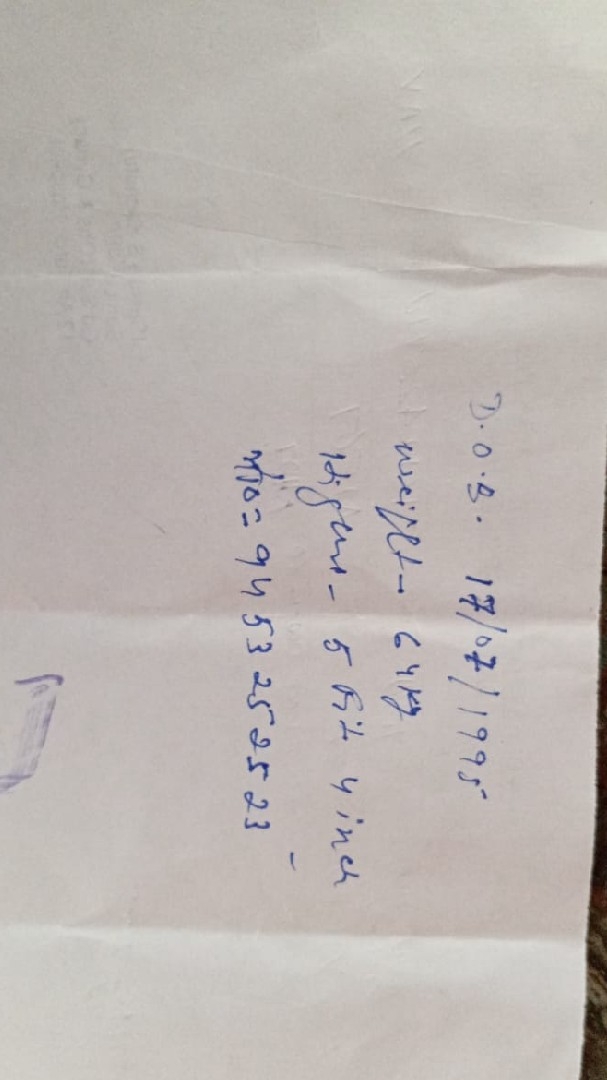 D.O.B. 17/07/1995
weight - 64 kg
5 fit 4 inch
= 9453252523